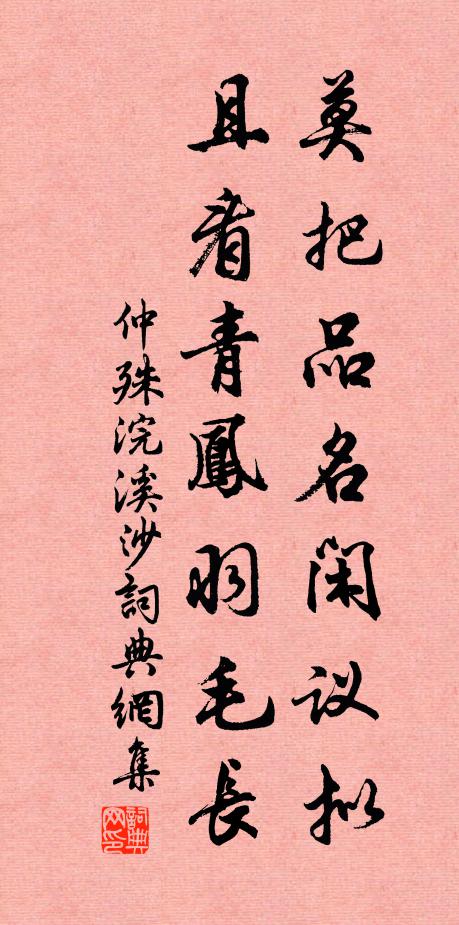 莫把品名閑议拟
且看青鳳羽毛長
仲殊浣溪沙詞典網集
詞典网印